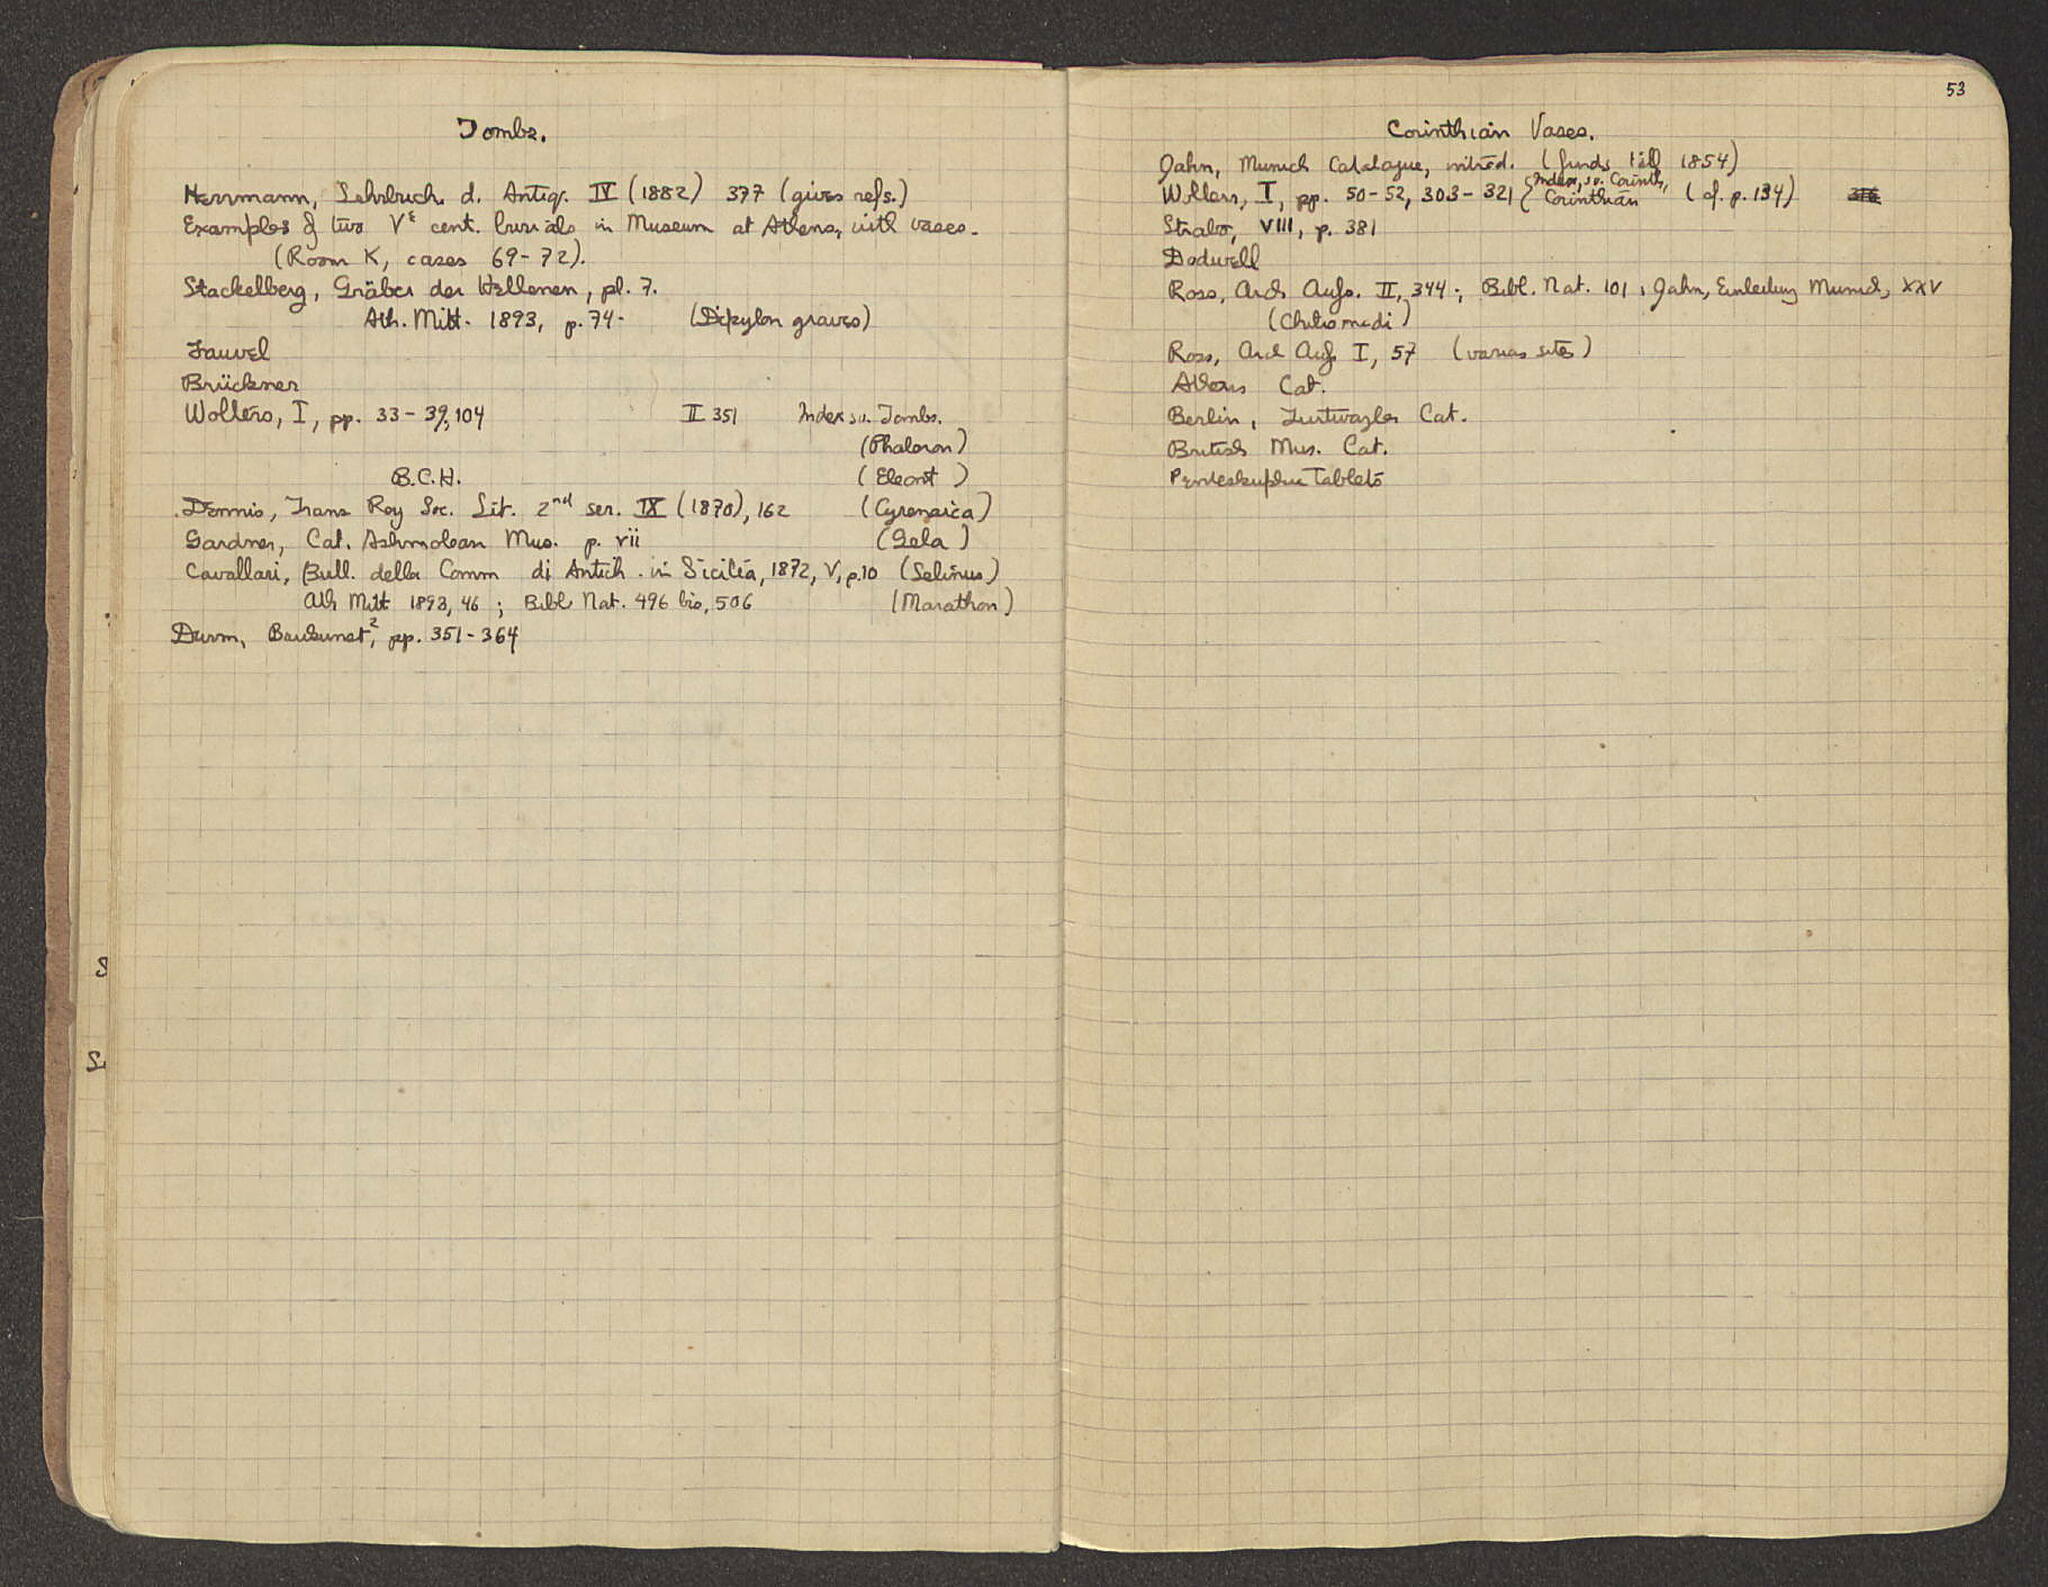 Tombs.
Herrmann, Lehrbuch d. Antiq. IV (1882) 377 (gives refs.)
Examples of two Vᵗ cent. burials in Museum at Athens, with vases.
(Room K, cases 69-72).
Stackelberg, Gräber der Hellenen, pl. 7.
Ath. Mitt. 1893, p. 74- (Dipylon graves)
Fauvel
Brückner
Wolters, I, pp. 33-39, 104 II 351 Index s.v. Tombs.
(Phaleron)
B.C.H. (Eleont )
Dennis, Trans Roy Soc. Lit. 2nd ser. IX (1870), 162 (Cyrenaica)
Gardner, Cat. Ashmolean Mus. p. vii (Gela)
Cavallari, Bull. della Comm di Antich. in Sicilia, 1872, V, p.10 (Selinus)
Ath Mitt 1893, 46 ; Bibl Nat. 496 bis, 506 (Marathon)
Durm, Baukunst², pp. 351-364
53
Corinthian Vases.
Jahn, Munich Catalogue, introd. (finds till 1854)
Wolters, I, pp. 50-52, 303-321 { Index, s.v. Corinth, Corinthian (cf. p. 134)
Strabo, VIII, p. 381
Dodwell
Ross, Arch Aufs. II, 344; Bibl. Nat. 101, Jahn, Einleitung Munich, XXV
(Chiliomodi)
Ross, Arch Aufs I, 57 (various sites)
Athens Cat.
Berlin, Furtwangler Cat.
British Mus. Cat.
Penteskuphia Tablets
S
S